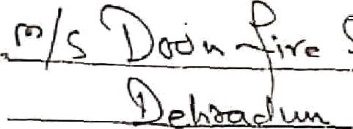 M/S Doon Fire
Dehradun